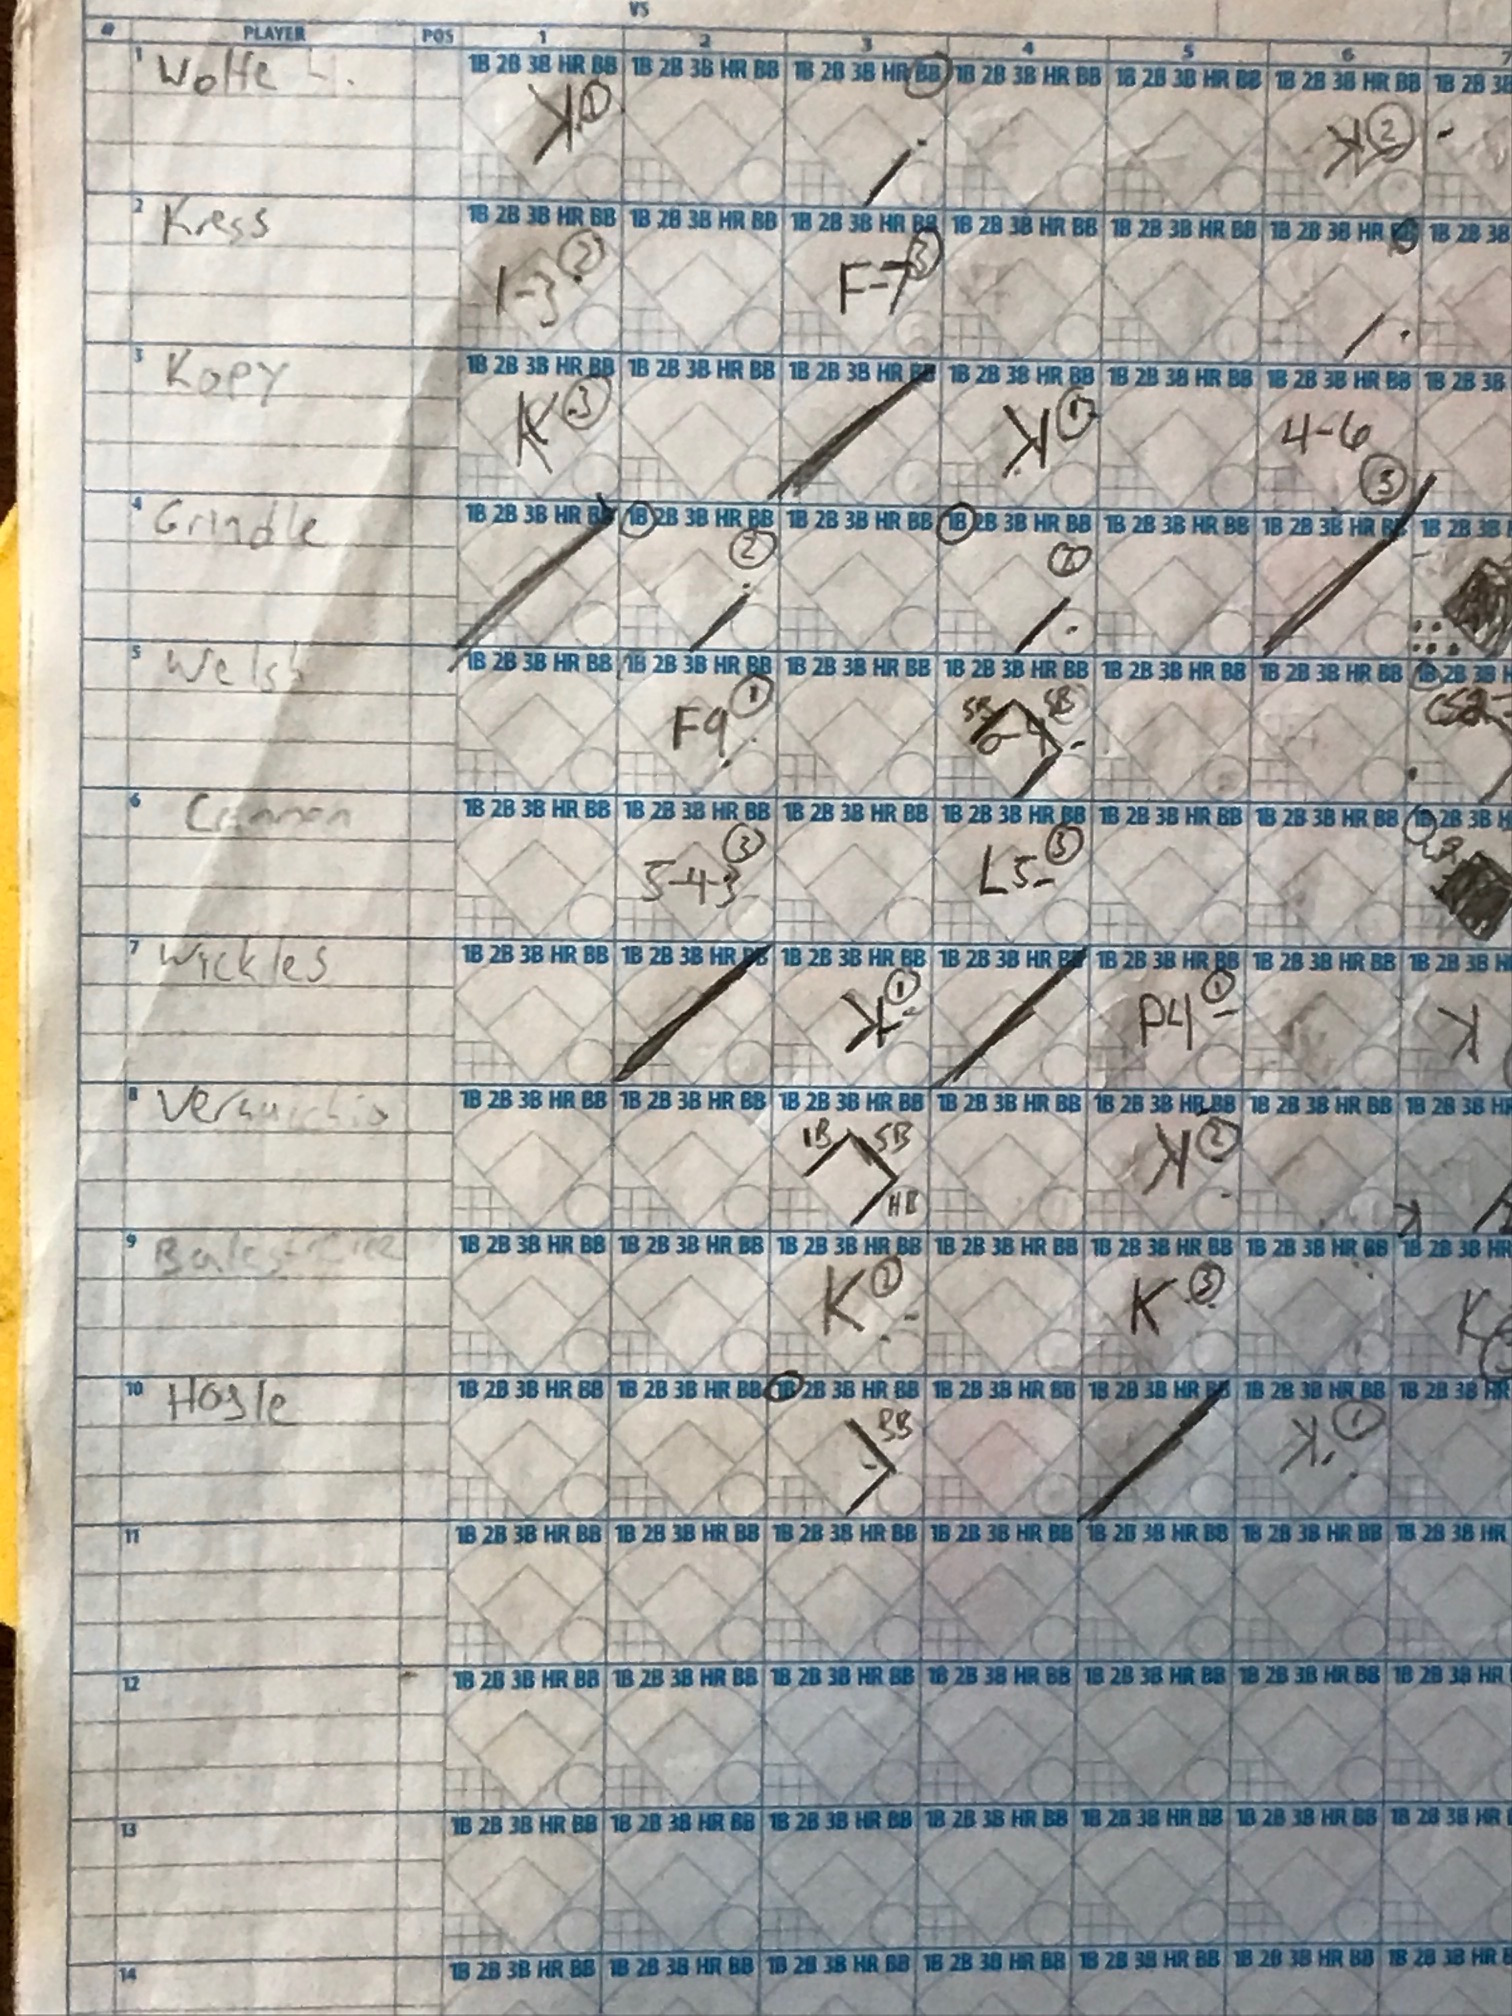 VS
# PLAYER POS 1 2 3 4 5 6 7
1 Wolfe 1B 2B 3B HR BB 1B 2B 3B HR BB 1B 2B 3B HR BB 1B 2B 3B HR BB 1B 2B 3B HR BB 1B 2B 3B HR BB 1B 2B 3B
K 1 K 2
2 Kress 1B 2B 3B HR BB 1B 2B 3B HR BB 1B 2B 3B HR BB 1B 2B 3B HR BB 1B 2B 3B HR BB 1B 2B 3B HR 1B 2B 3B
1-3 2 F-7 3
3 Kopy 1B 2B 3B HR BB 1B 2B 3B HR BB 1B 2B 3B HR BB 1B 2B 3B HR BB 1B 2B 3B HR BB 1B 2B 3B HR BB 1B 2B 3B
K 3 K 1 4-6 3
4 Grindle 1B 2B 3B HR BB 1B 2B 3B HR BB 1B 2B 3B HR BB 1B 2B 3B HR BB 1B 2B 3B HR BB 1B 2B 3B HR BB 1B 2B 3B
2 2
5 Welsh 1B 2B 3B HR BB 1B 2B 3B HR BB 1B 2B 3B HR BB 1B 2B 3B HR BB 1B 2B 3B HR BB 1B 2B 3B HR BB 1B 2B 3B H
F9 1 SB SB 6-4
6 Cannon 1B 2B 3B HR BB 1B 2B 3B HR BB 1B 2B 3B HR BB 1B 2B 3B HR BB 1B 2B 3B HR BB 1B 2B 3B HR BB 2B 3B H
5-4-3 3 L5 3
7 Wickles 1B 2B 3B HR BB 1B 2B 3B HR BB 1B 2B 3B HR BB 1B 2B 3B HR BB 1B 2B 3B HR BB 1B 2B 3B HR BB 1B 2B 3B H
K 1 P4 1 K
8 1B 2B 3B HR BB 1B 2B 3B HR BB 1B 2B 3B HR BB 1B 2B 3B HR BB 1B 2B 3B HR BB 1B 2B 3B HR BB 1B 2B 3B H
1B SB HB K 2 K
9 1B 2B 3B HR BB 1B 2B 3B HR BB 1B 2B 3B HR BB 1B 2B 3B HR BB 1B 2B 3B HR BB 1B 2B 3B HR BB 1B 2B 3B HR
K 2 K 3 K
10 Hogle 1B 2B 3B HR BB 1B 2B 3B HR BB 1B 2B 3B HR BB 1B 2B 3B HR BB 1B 2B 3B HR BB 1B 2B 3B HR BB 1B 2B 3B HR
BB K 1
11 1B 2B 3B HR BB 1B 2B 3B HR BB 1B 2B 3B HR BB 1B 2B 3B HR BB 1B 2B 3B HR BB 1B 2B 3B HR BB 1B 2B 3B HR
12 1B 2B 3B HR BB 1B 2B 3B HR BB 1B 2B 3B HR BB 1B 2B 3B HR BB 1B 2B 3B HR BB 1B 2B 3B HR BB 1B 2B 3B HR
13 1B 2B 3B HR BB 1B 2B 3B HR BB 1B 2B 3B HR BB 1B 2B 3B HR BB 1B 2B 3B HR BB 1B 2B 3B HR BB 1B 2B 3B HR
14 1B 2B 3B HR BB 1B 2B 3B HR BB 1B 2B 3B HR BB 1B 2B 3B HR BB 1B 2B 3B HR BB 1B 2B 3B HR BB 1B 2B 3B HR